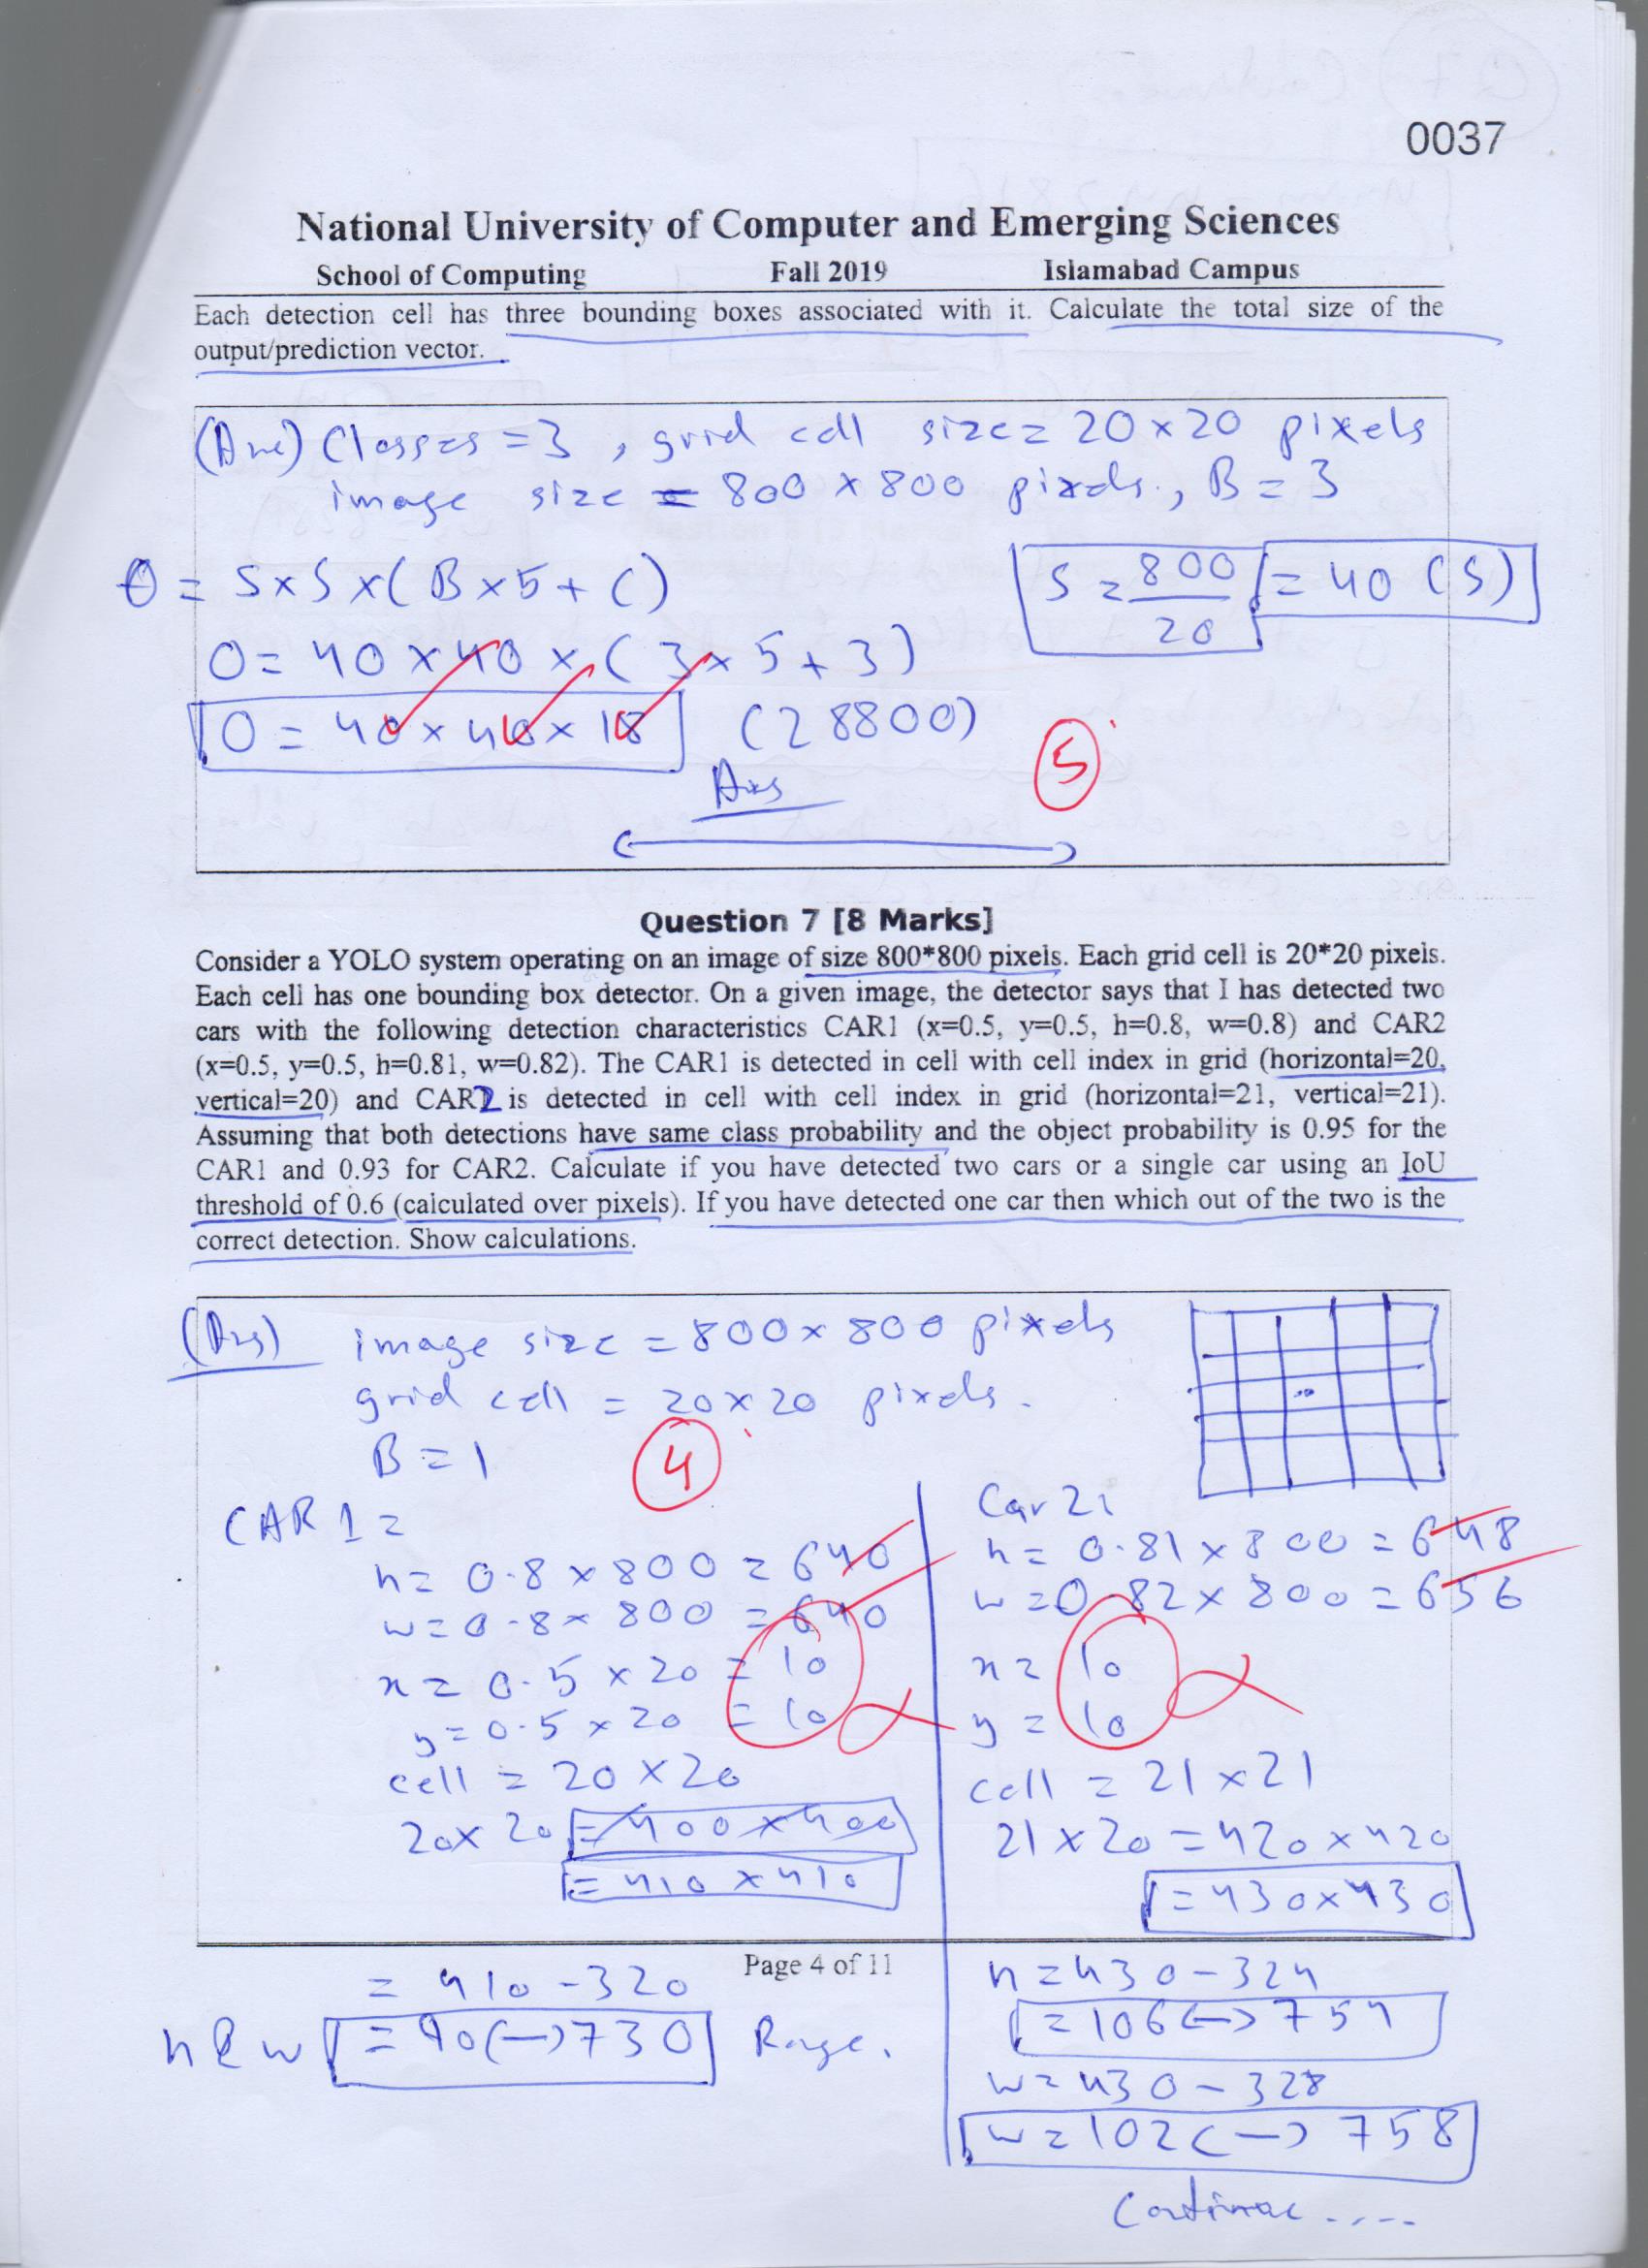 0037
National University of Computer and Emerging Sciences
School of Computing Fall 2019 Islamabad Campus
Each detection cell has three bounding boxes associated with it. Calculate the total size of the
output/prediction vector.
(Ans) Classes = 3 , grid cell size = 20 x 20 pixels
image size = 800 x 800 pixels., B = 3
O = S x S x ( B x 5 + C )
S = 800 / 20 = 40 (S)
O = 40 x 40 x ( 3 x 5 + 3 )
O = 40 x 40 x 18 (28800)
5
Ans
Question 7 [8 Marks]
Consider a YOLO system operating on an image of size 800*800 pixels. Each grid cell is 20*20 pixels.
Each cell has one bounding box detector. On a given image, the detector says that I has detected two
cars with the following detection characteristics CAR1 (x=0.5, y=0.5, h=0.8, w=0.8) and CAR2
(x=0.5, y=0.5, h=0.81, w=0.82). The CAR1 is detected in cell with cell index in grid (horizontal=20,
vertical=20) and CAR2 is detected in cell with cell index in grid (horizontal=21, vertical=21).
Assuming that both detections have same class probability and the object probability is 0.95 for the
CAR1 and 0.93 for CAR2. Calculate if you have detected two cars or a single car using an IoU
threshold of 0.6 (calculated over pixels). If you have detected one car then which out of the two is the
correct detection. Show calculations.
(Ans) image size = 800 x 800 pixels
grid cell = 20 x 20 pixels.
B = 1
4
CAR 1 =
h = 0.8 x 800 = 640
w = 0.8 x 800 = 640
x = 0.5 x 20 = 10
y = 0.5 x 20 = 10
cell = 20 x 20
20 x 20 = 400 x 400
= 410 x 410
= 410 - 320
h & w = 90 <-> 730 Range.
Car 2:
h = 0.81 x 800 = 648
w = 0.82 x 800 = 656
x = 10
y = 10
cell = 21 x 21
21 x 20 = 420 x 420
= 430 x 430
h = 430 - 324
= 106 <-> 754
w = 430 - 328
w = 102 <-> 758
Continue .....
Page 4 of 11